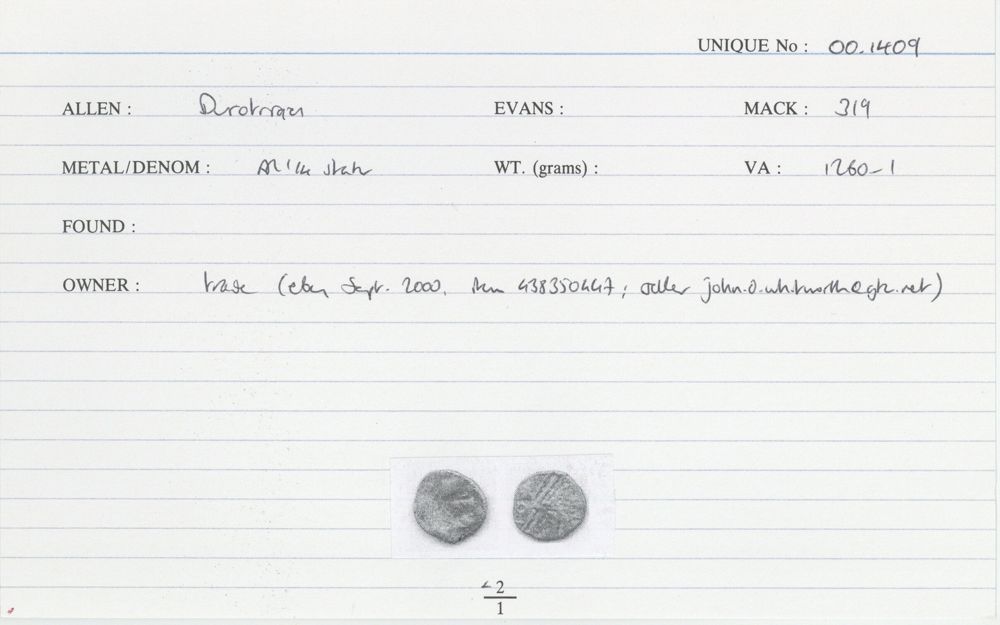 UNIQUE No : 00.1409
ALLEN : Durotrigan EVANS : MACK : 319
METAL/DENOM : AR 1/4 stater WT. (grams) : VA : 1260-1
FOUND :
OWNER : trade (ebay Sept. 2000, item 438350447; seller john.o.whitworth@gte.net)
2
1